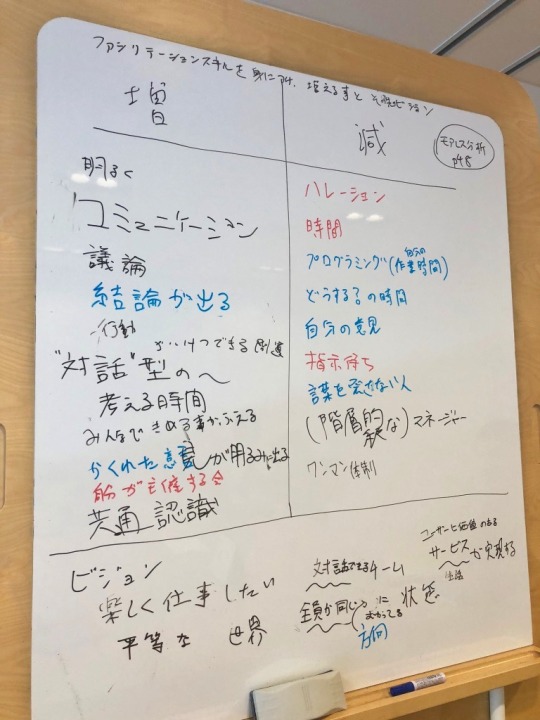 ファシリテーションスキルを身に付け、増える事と その先ビジョン
増
減
モアレス分析
P48
明るく
コミュニケーション
議論
結論が出る
行動
できる
"対話"型の〜
考える時間
みんなできめる事がふえる
かくれた意見が明るみに出る
自分が主催する会
共通認識
ハレーション
時間
プログラミング(自分の作業時間)
どうする?の時間
自分の意見
指示待ち
言葉を発さない人
(階層的な)マネージャー
ワンマン体制
ビジョン
楽しく仕事したい
平等な 世界
対話できるチーム
全員が同じ
方向
に
むかってる
状態
ユーザーに価値のある
サービスが実現する